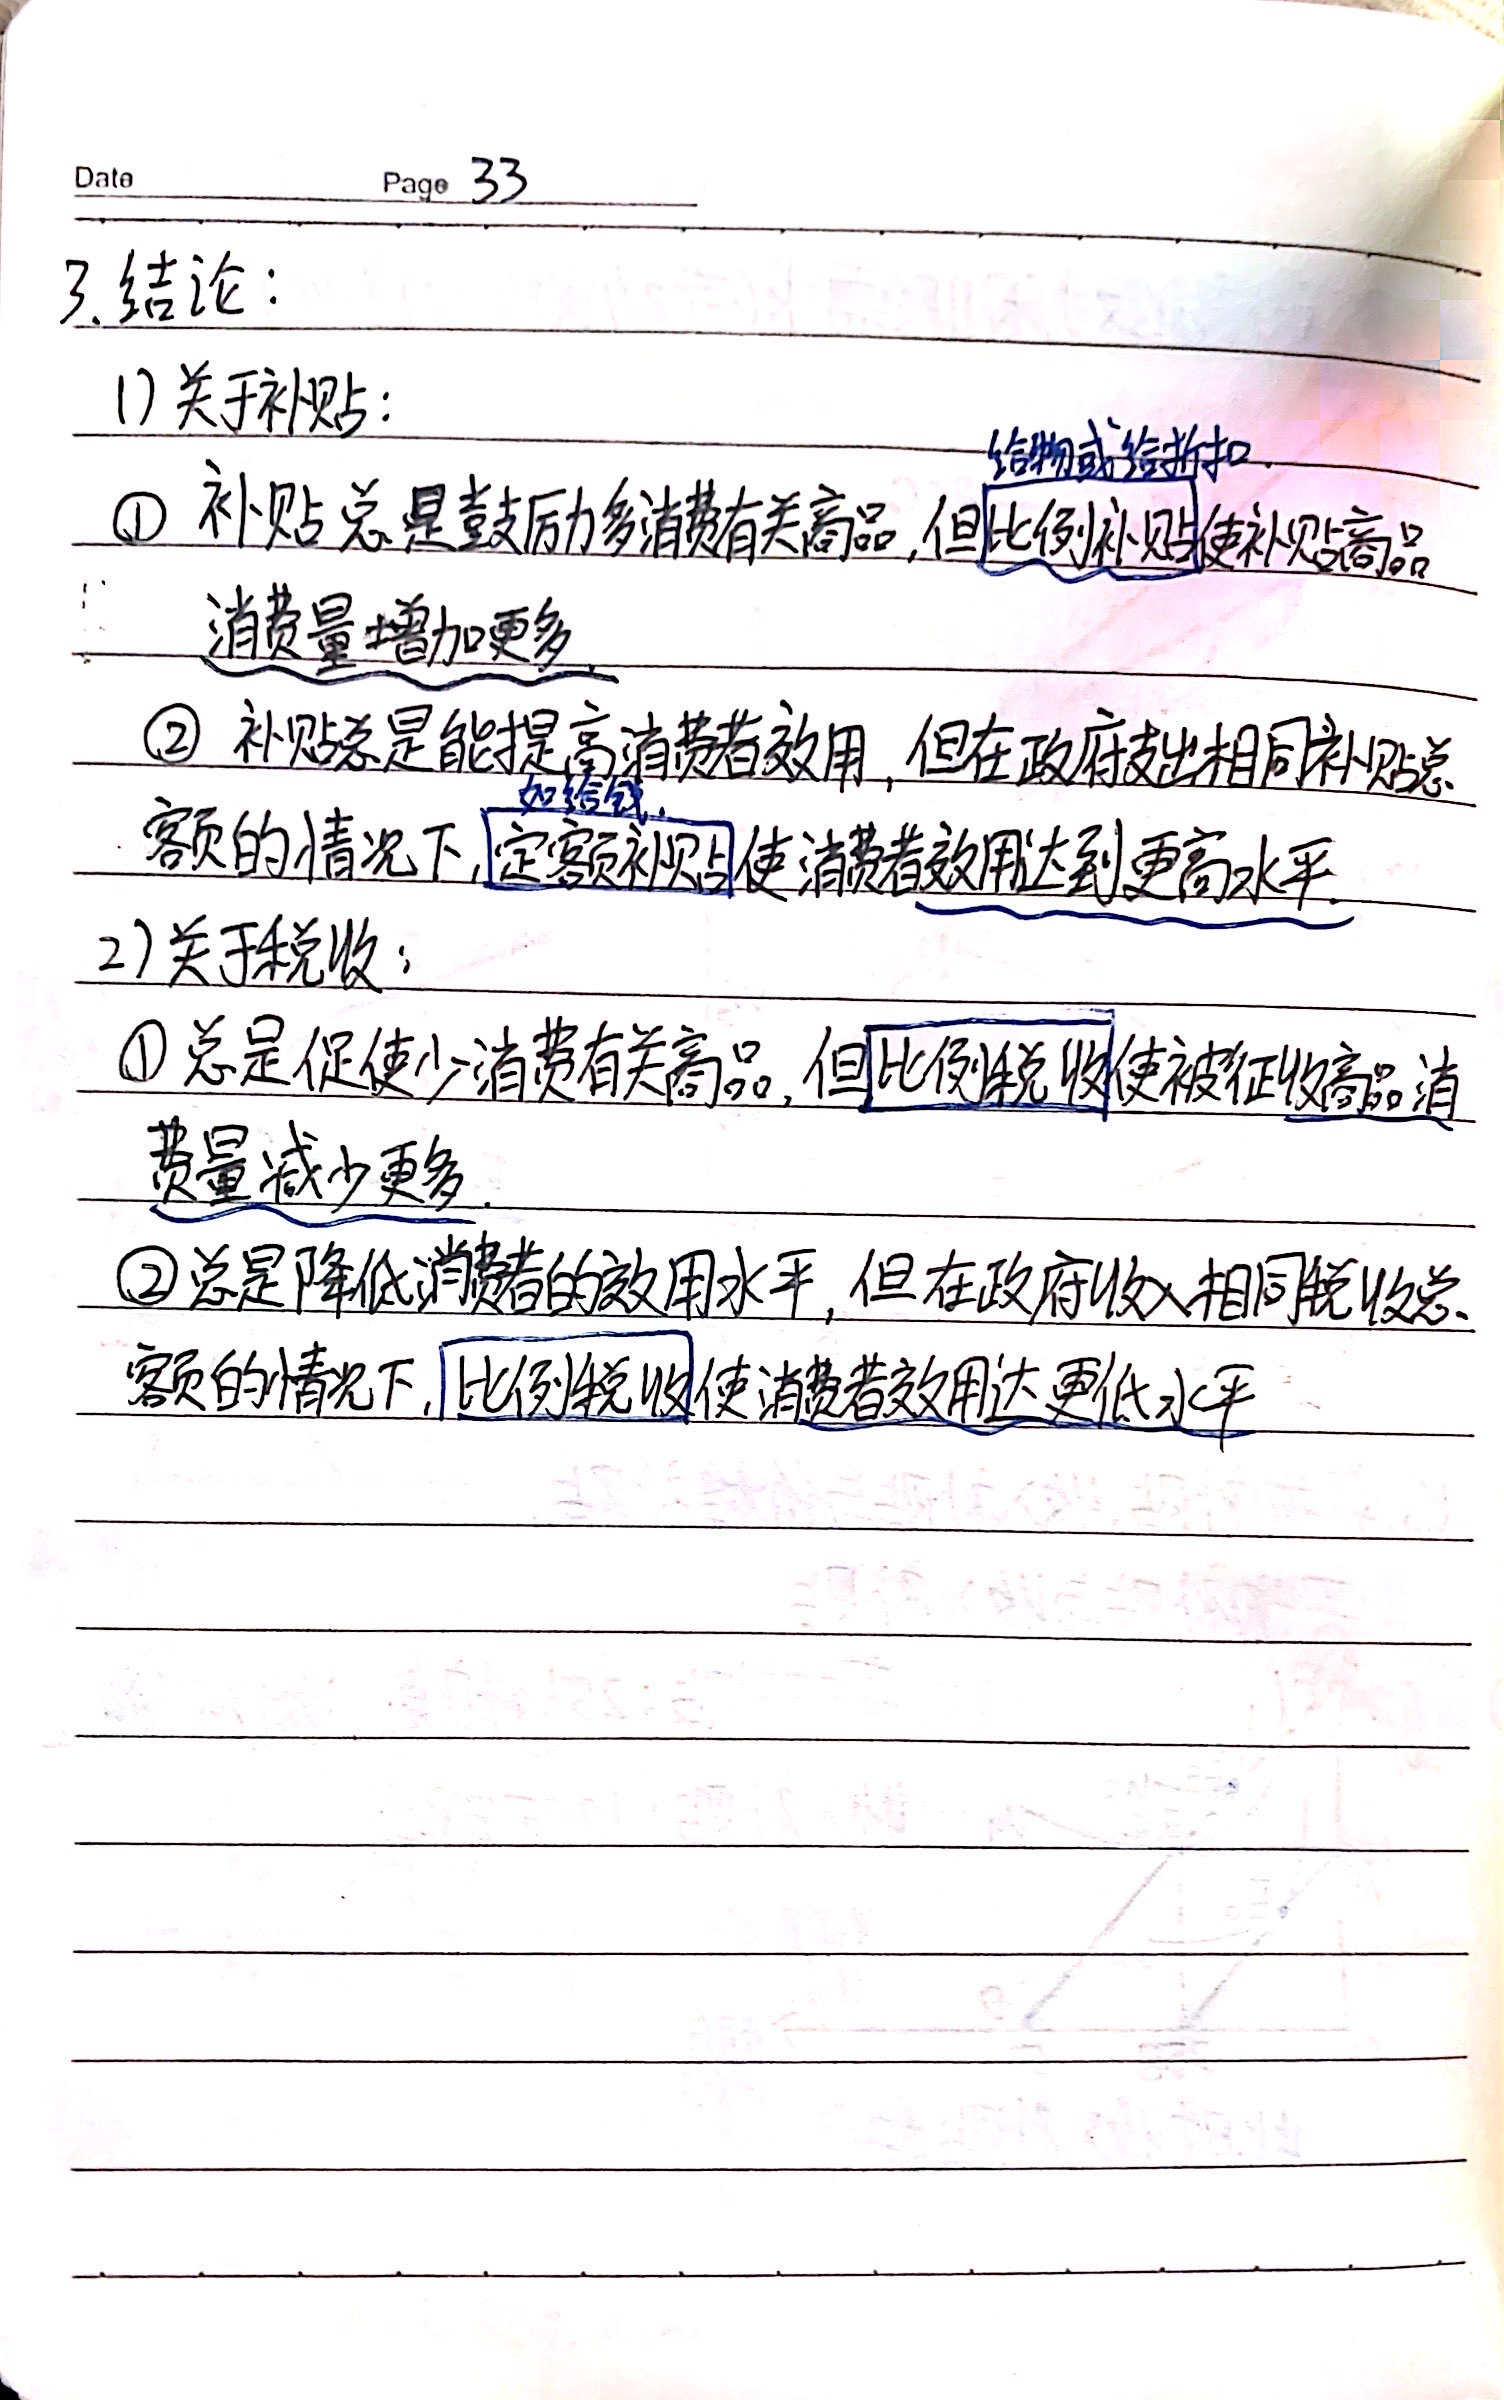 Date Page 33
3.结论：
1)关于补贴：
给物或给折扣.
① 补贴总是鼓励多消费有关商品,但比例补贴使补贴商品
消费量增加更多.
② 补贴总是能提高消费者效用,但在政府支出相同补贴总
如给钱.
额的情况下,定额补贴使消费者效用达到更高水平.
2)关于税收：
①总是促使少消费有关商品,但比例税收使被征收商品消
费量减少更多.
②总是降低消费者的效用水平,但在政府收入相同税收总
额的情况下,比例税收使消费者效用达更低水平